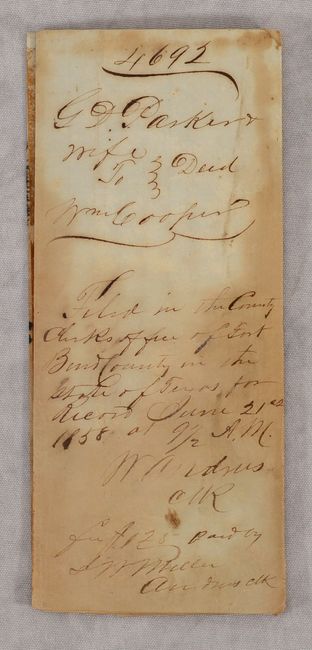 4692
G D. Parker &
wife
To } Deed
Wm Cooper
Filed in the County
Clerks office of Fort
Bend County in the
State of Texas, for
Record June 21st
1858 at 9½ A.M.
W Andrus
Clk
$1.25 Paid by
Miller
Andrus Clk